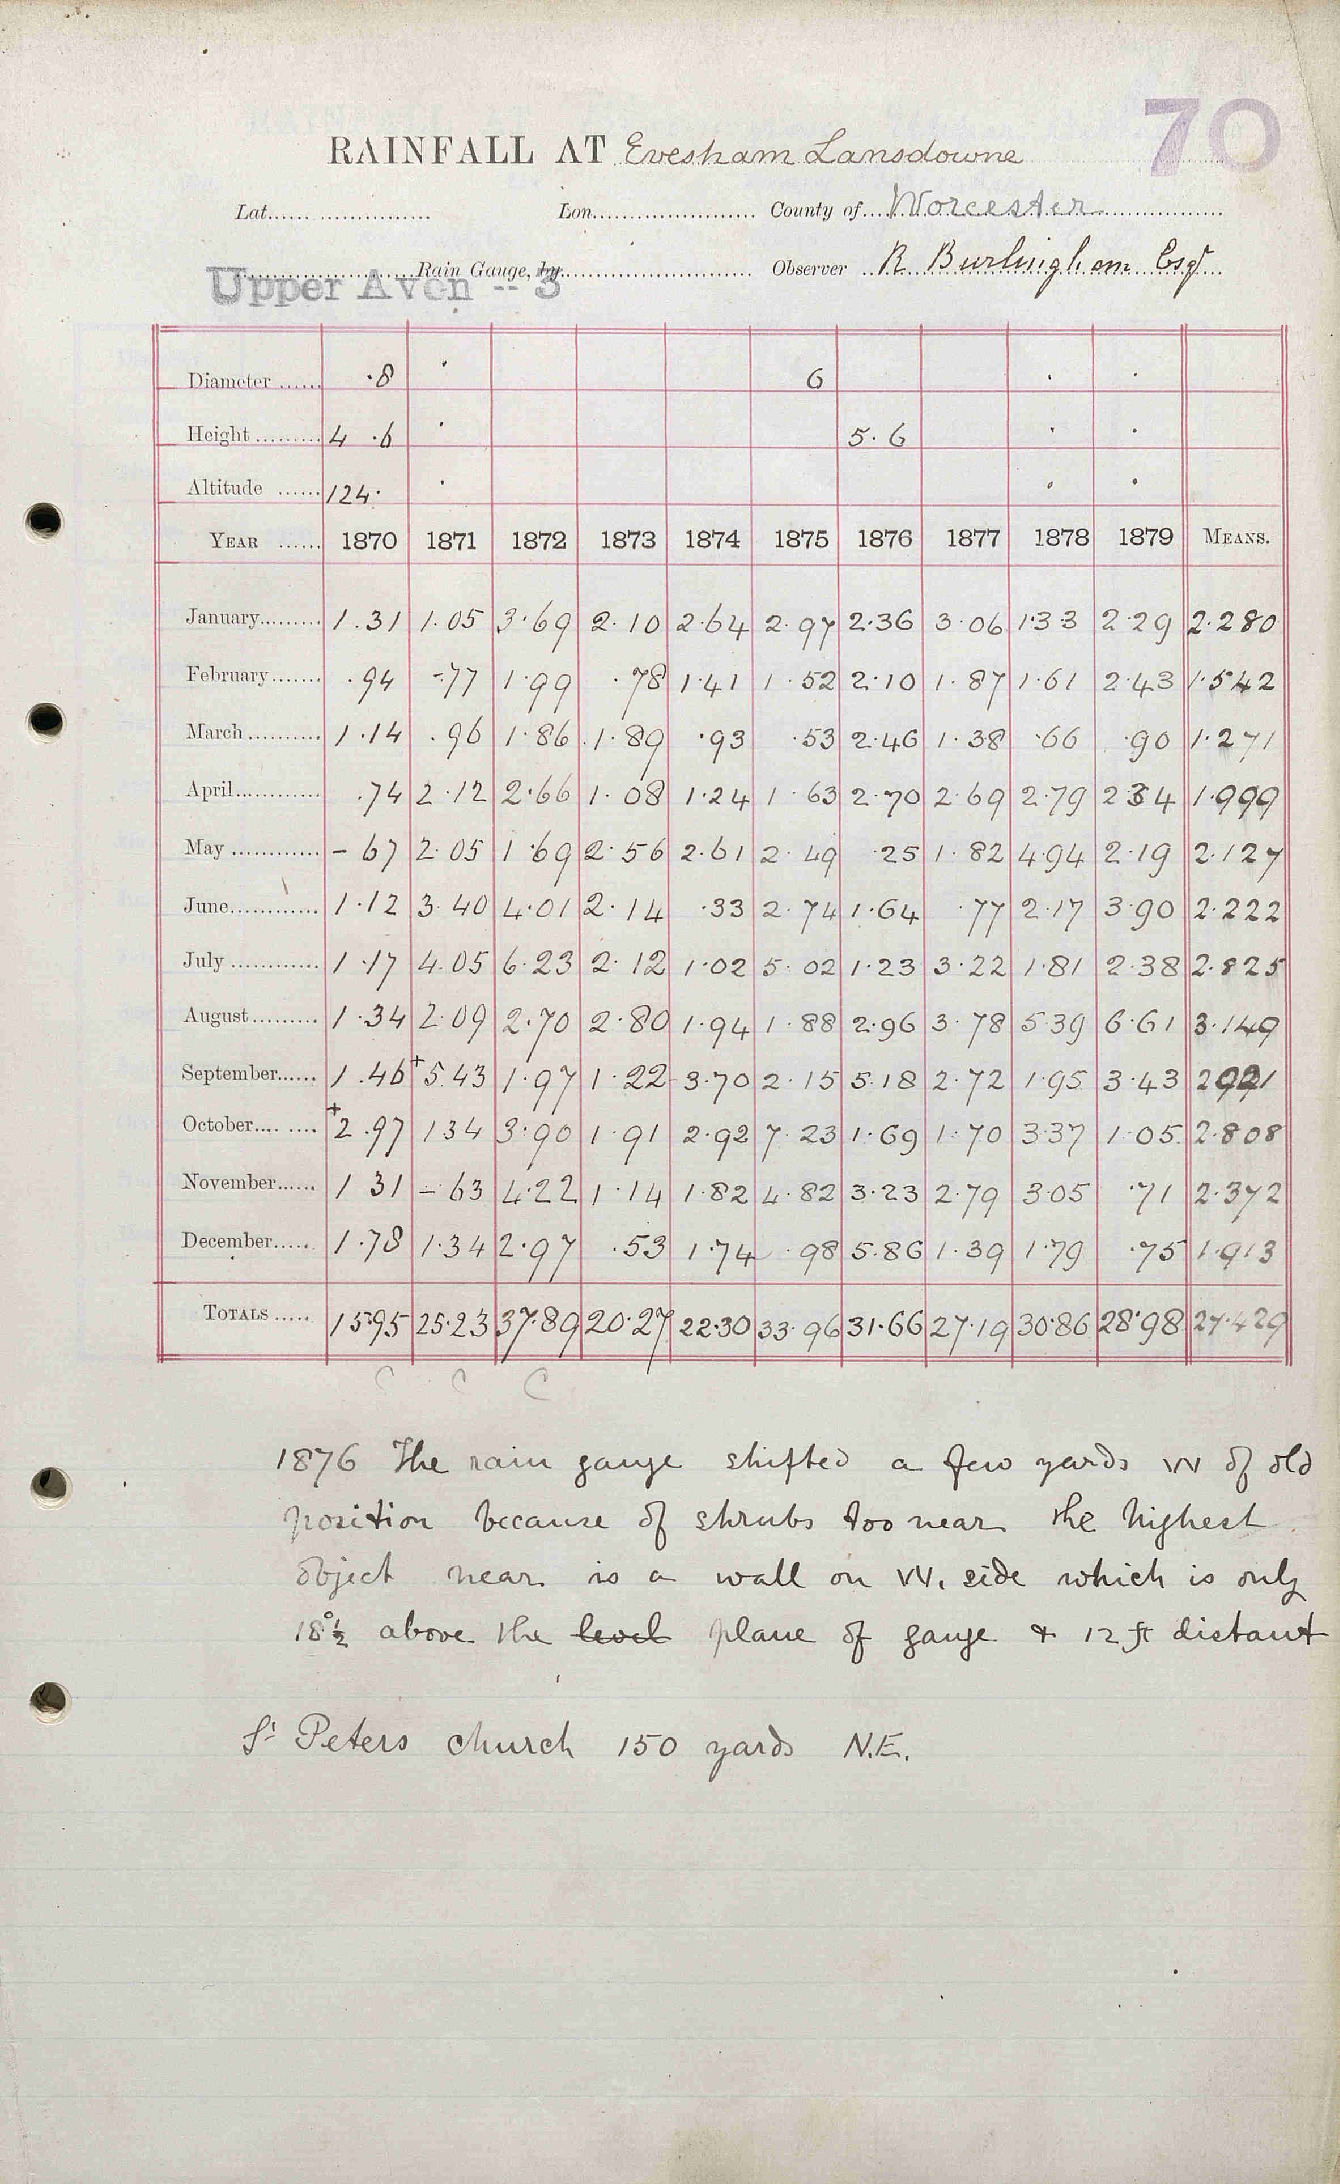 70
RAINFALL AT Evesham Lansdowne
Lat. Lon. County of Worcester
Rain Gauge, by Observer R Burlingham Esqr
Upper Avon -- 3
Diameter ·8 6
Height 4 ·6 5·6
Altitude 124·
YEAR 1870 1871 1872 1873 1874 1875 1876 1877 1878 1879 MEANS.
January 1.31 1.05 3.69 2.10 2.64 2.97 2.36 3.06 1.33 2.29 2.280
February .94 .77 1.99 .78 1.41 1.52 2.10 1.87 1.61 2.43 1.542
March 1.14 .96 1.86 1.89 .93 .53 2.46 1.38 .66 .90 1.271
April .74 2.12 2.66 1.08 1.24 1.63 2.70 2.69 2.79 2.34 1.999
May - 67 2.05 1.69 2.56 2.61 2.49 .25 1.82 4.94 2.19 2.127
June 1.12 3.40 4.01 2.14 .33 2.74 1.64 .77 2.17 3.90 2.222
July 1.17 4.05 6.23 2.12 1.02 5.02 1.23 3.22 1.81 2.38 2.825
August 1.34 2.09 2.70 2.80 1.94 1.88 2.96 3.78 5.39 6.61 3.149
September 1.46 +5.43 1.97 1.22 3.70 2.15 5.18 2.72 1.95 3.43 2921
October +2.97 1 34 3.90 1.91 2.92 7.23 1.69 1.70 3.37 1.05 2.808
November 1 31 - 63 4.22 1.14 1.82 4.82 3.23 2.79 3.05 .71 2.372
December 1.78 1.34 2.97 .53 1.74 .98 5.86 1.39 1.79 .75 1.913
TOTALS 15.95 25.23 37.89 20.27 22.30 33.96 31.66 27.19 30.86 28.98 27.429
C C C
1876 The rain gauge shifted a few yards W of old
position because of shrubs too near the highest
object near is a wall on W. side which is only
18°½ above the level plane of gauge & 12 ft distant
St Peters church 150 yards N.E.